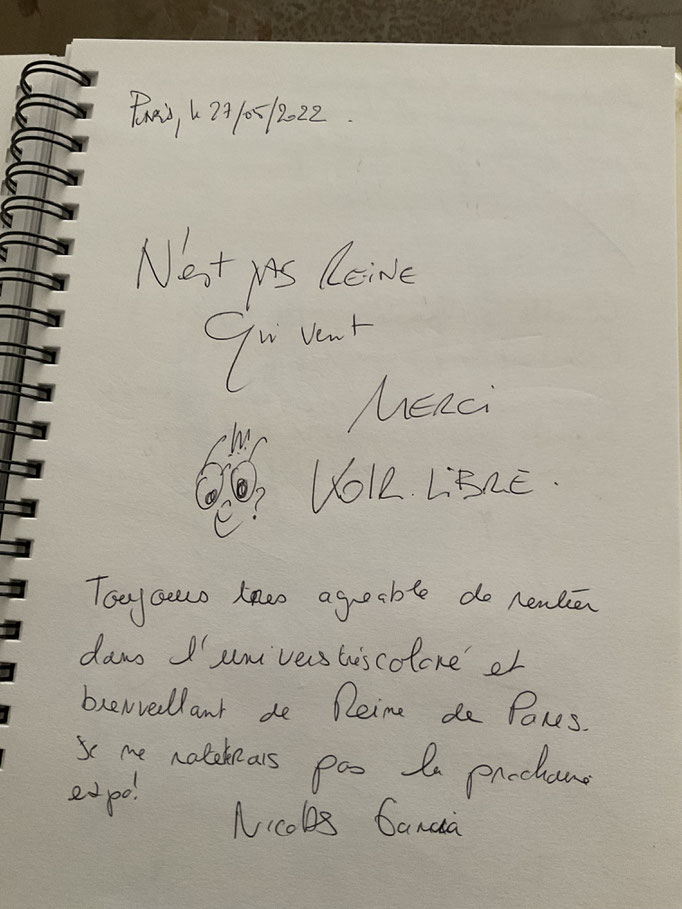 Paris, le 27/05/2022.
N'est pas REINE
Qui veut
MERCI
VOIR. LiBRE.
Toujours très agréable de rentrer
dans l'univers très coloré et
bienveillant de Reine de Paris.
Je ne raterais pas la prochaine
expo!
Nicolas Garcia